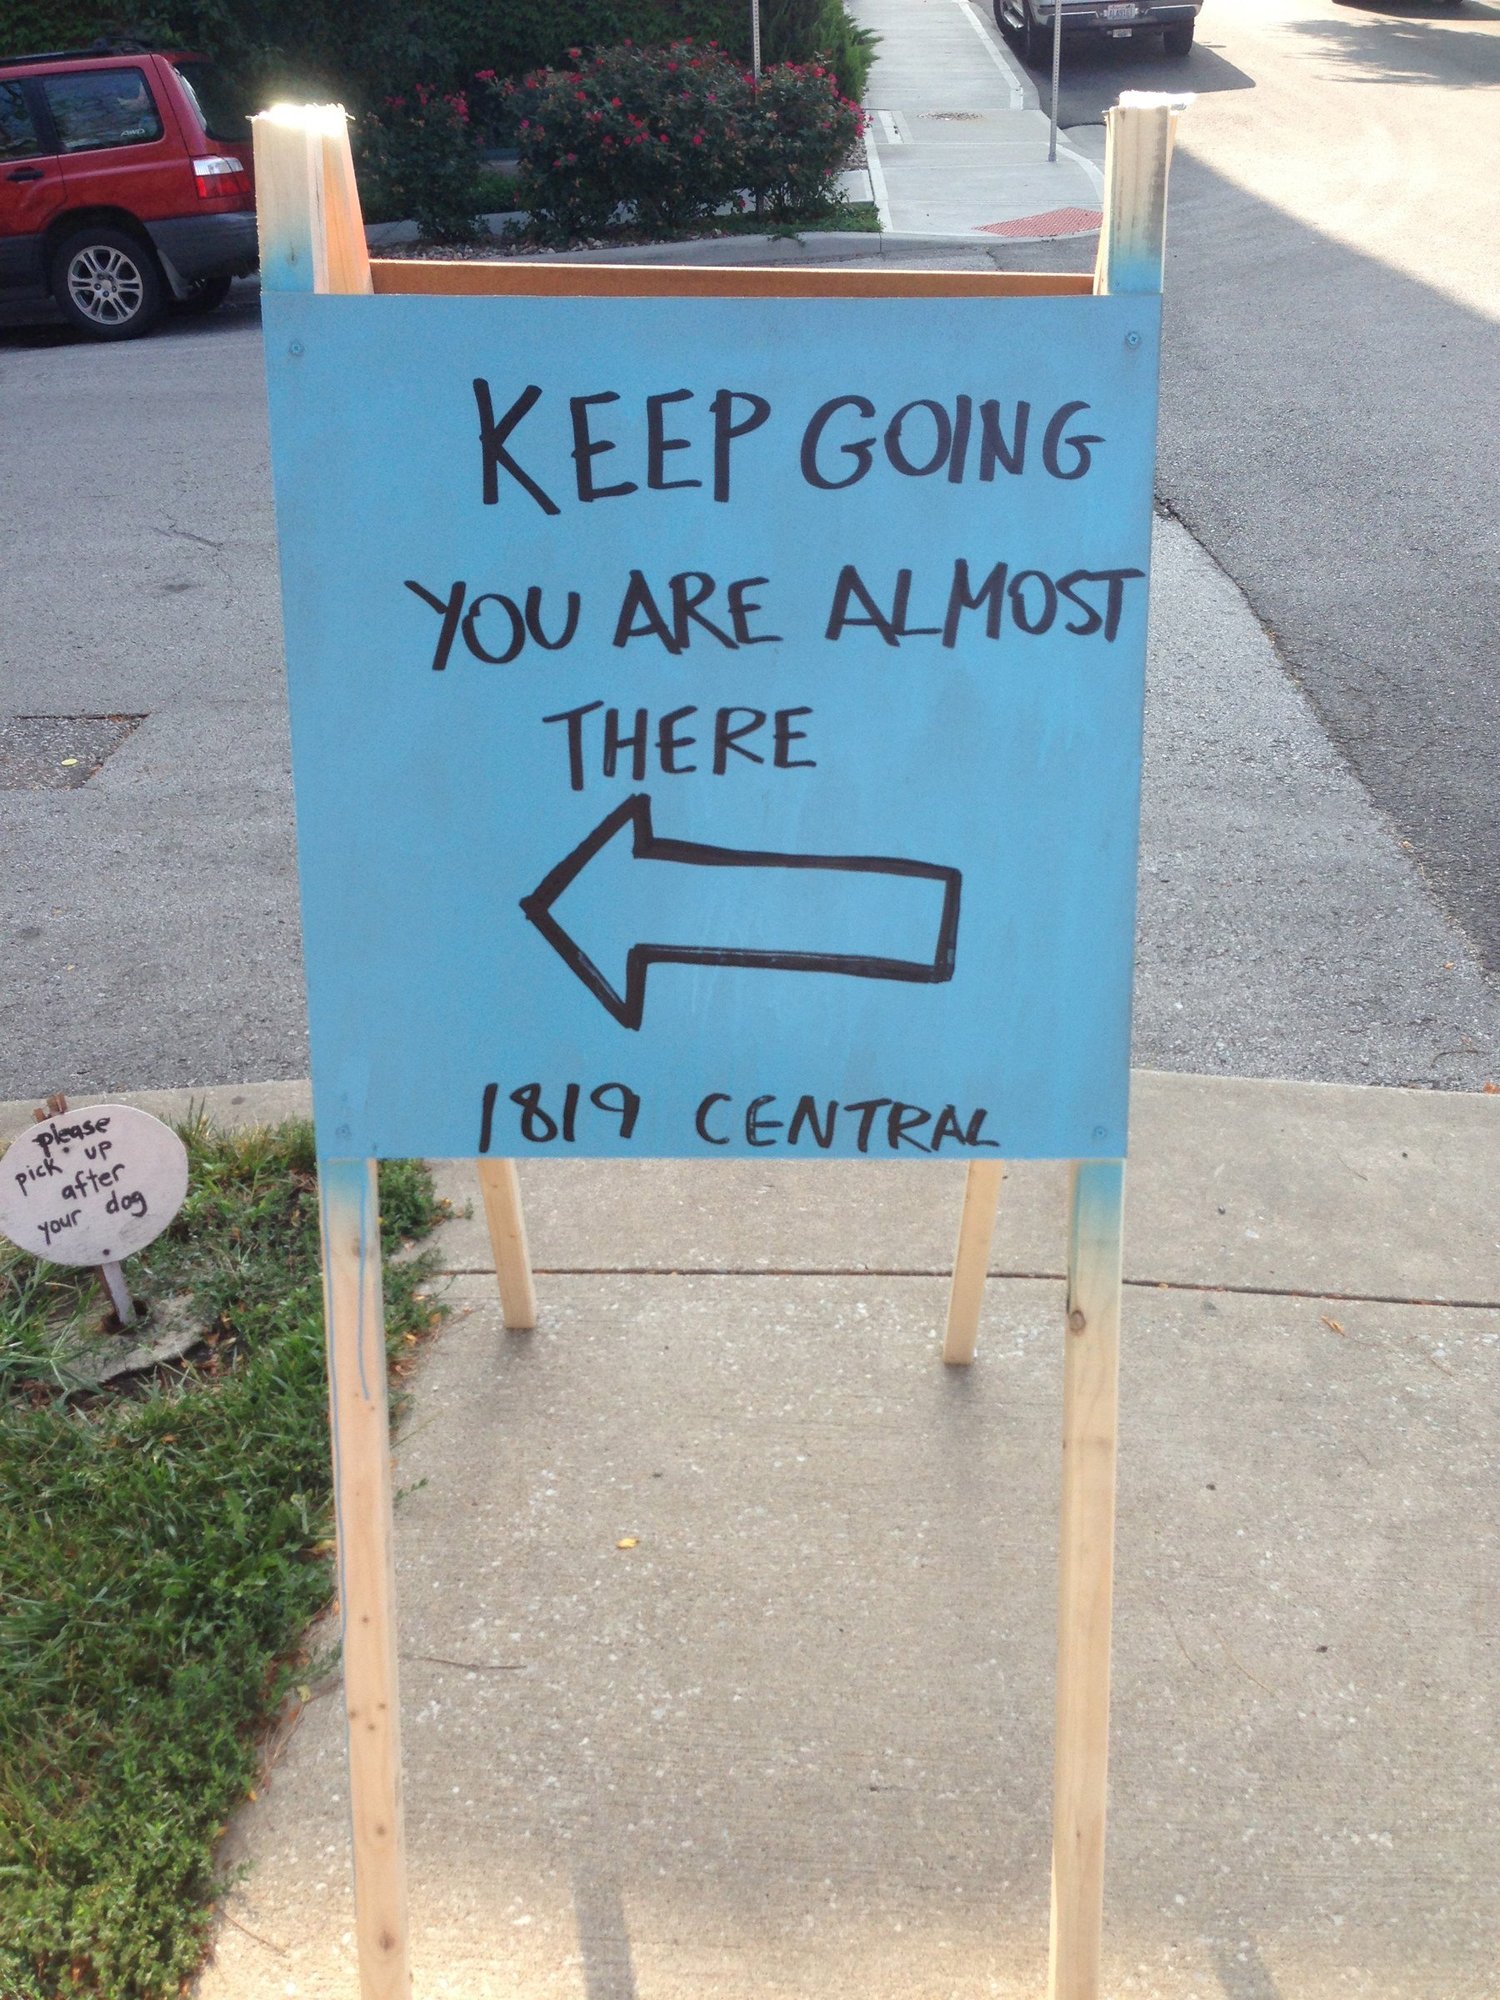 KEEP GOING
YOU ARE ALMOST
THERE
1819 CENTRAL
please
pick up
after
your dog
AWD